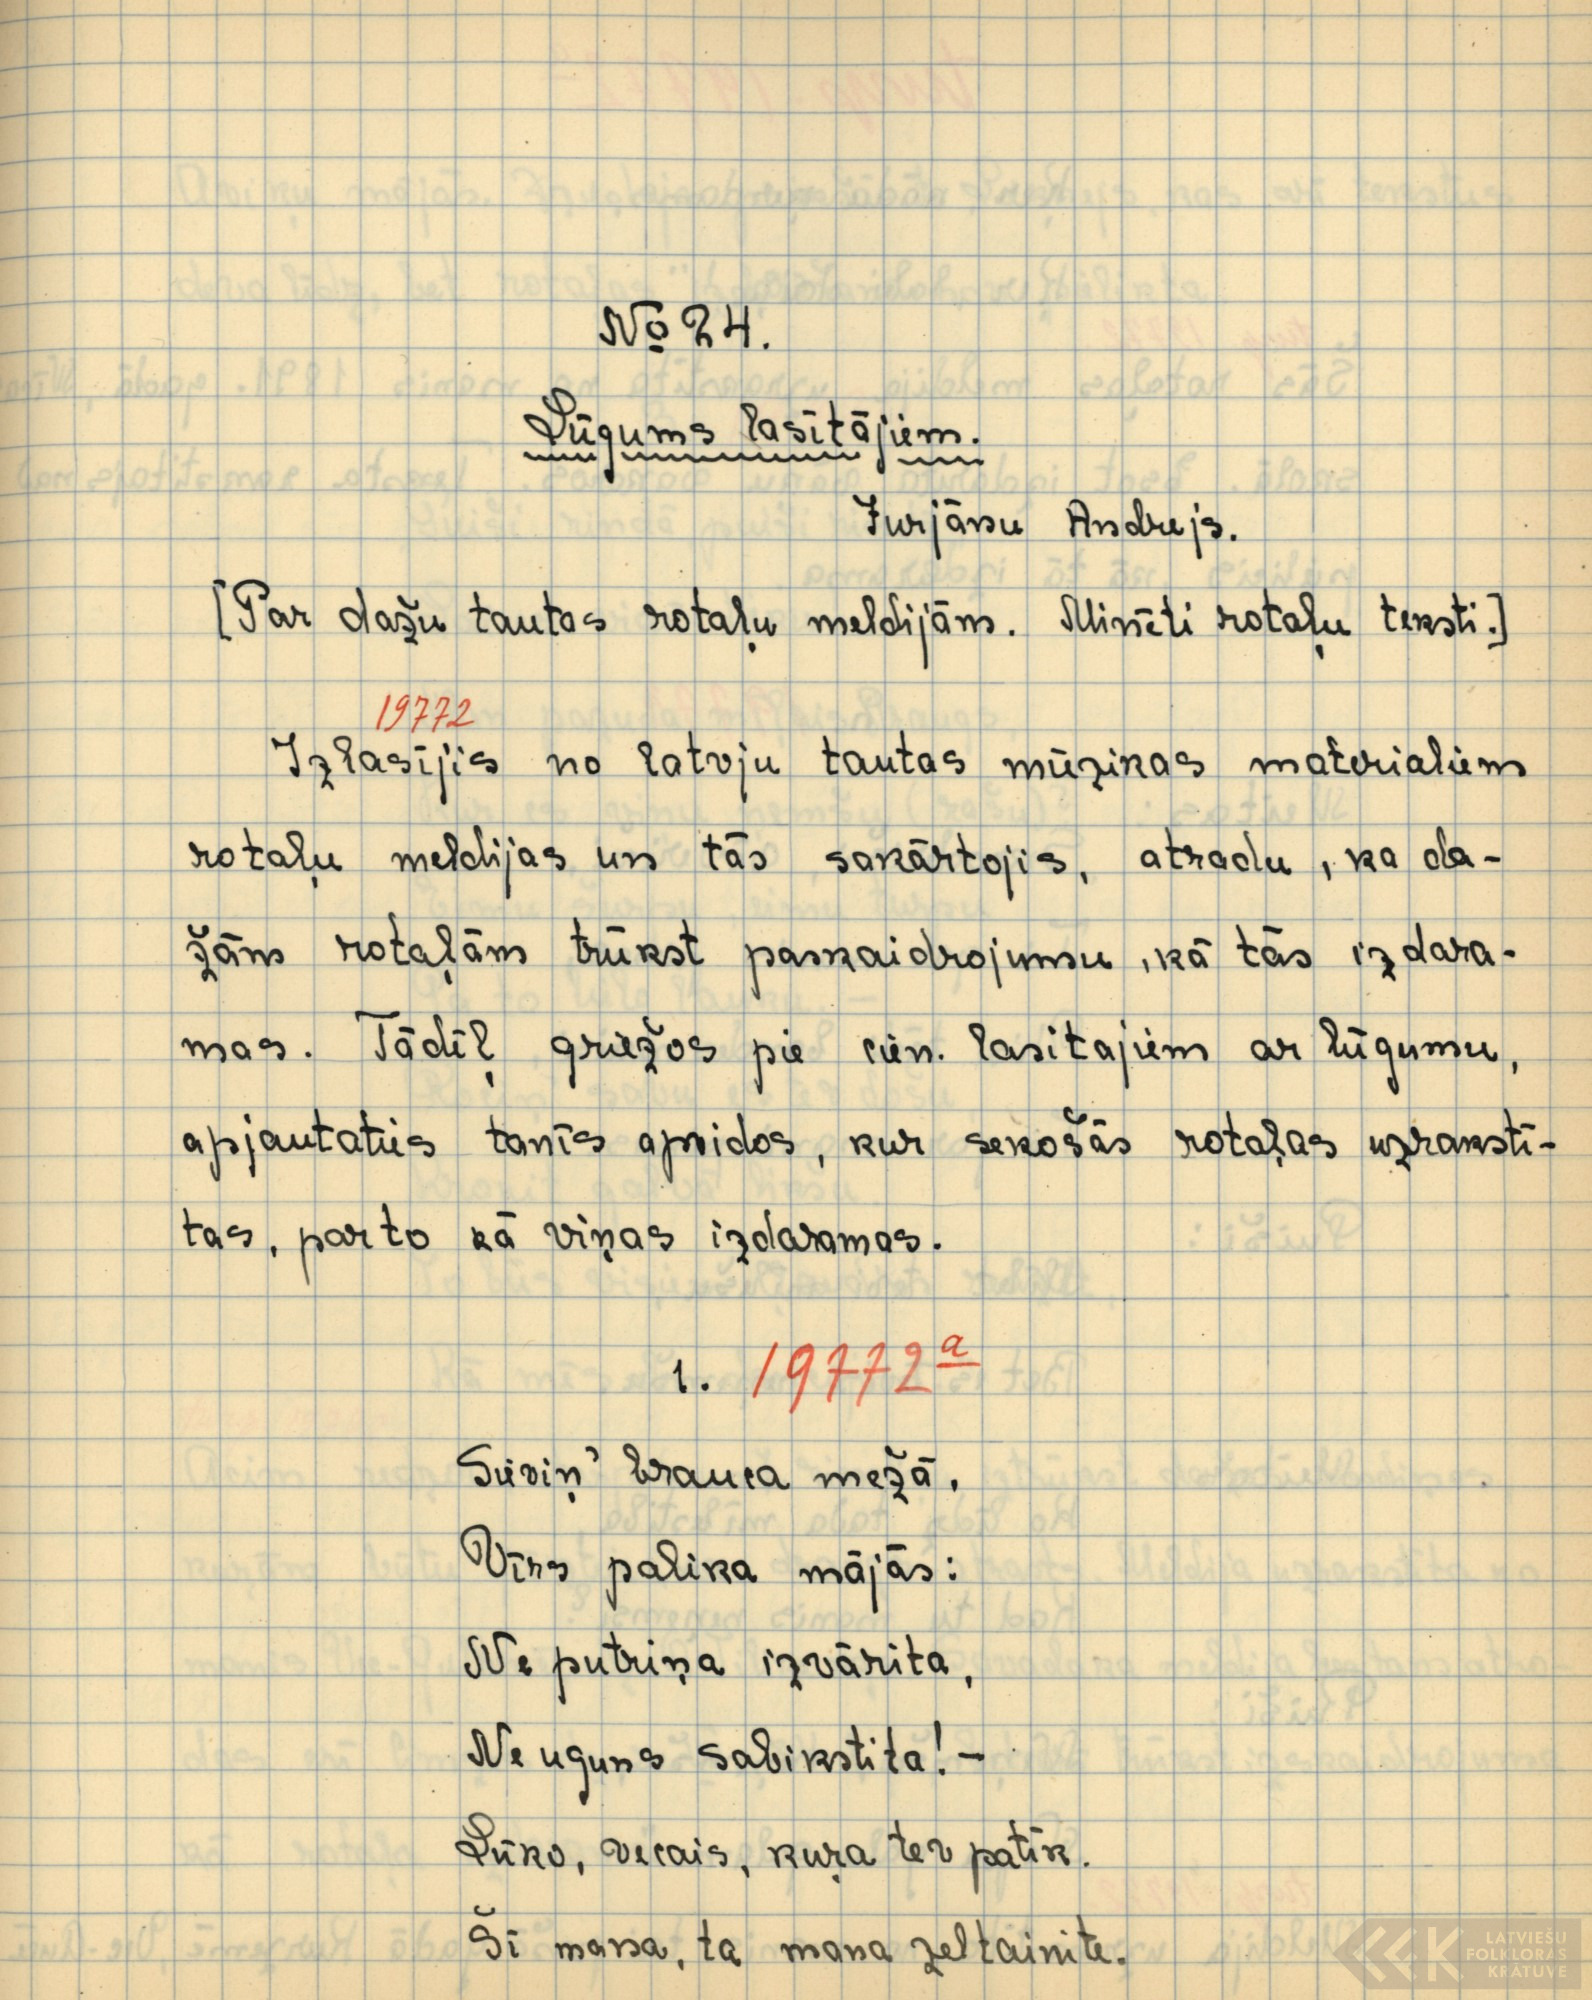 № 24.
Lūgums lasītājiem.
Jurjānu Andrejs.
[Par dažu tautas rotaļu meldijām. Minēti rotaļu teksti.]
19772
Izlasījis no latvju tautas mūzikas materialiem
rotaļu meldijas un tās sakārtojis, atradu, ka da-
žām rotaļām trūkst paskaidrojumu, kā tās izdara-
mas. Tādēļ griežos pie cien. lasitajiem ar lūgumu,
apjautaties tanīs apvidos, kur sekošās rotaļas uzrakstī-
tas, par to kā viņas izdaramas.
1. 19772a
Sieviņ' brauca mežā,
Vīrs palika mājās:
Ne putriņa izvārita,
Ne uguns sabikstita! –
Lūko, vecais, kuŗa tev patīk.
Šī mana, ta mana zeltainite.
LATVIEŠU
FOLKLORAS
KRĀTUVE